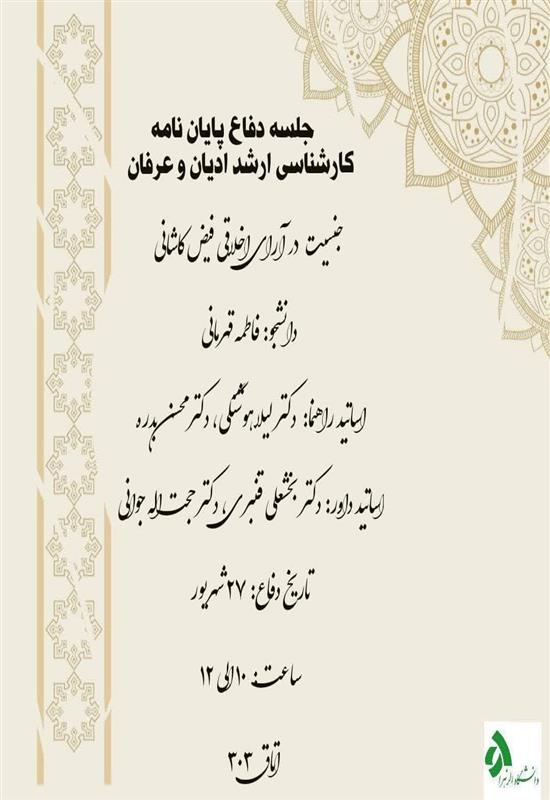 جلسه دفاع پایان نامه
کارشناسی ارشد ادیان و عرفان
جنسیت در آرای اخلاقی فیض کاشانی
دانشجو: فاطمه قهرمانی
اساتید راهنما: دکتر لیلا هوشنگی، دکتر محسن بدره
اساتید داور: دکتر بخشعلی قنبری، دکتر حجت اله جوانی
تاریخ دفاع: ۲۷ شهریور
ساعت: ۱۰ الی ۱۲
اتاق ۳۰۳
دانشگاه الزهرا